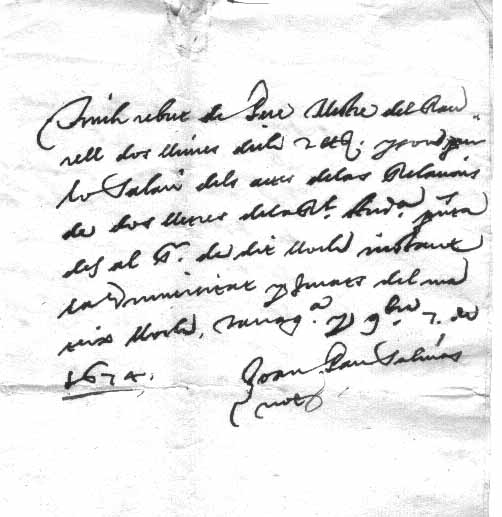 Tinch rebut de Pere Mestre del Pau
rell dos lliures dich 2 ll. y son per
lo Salari dels actes de las Relacions
de dos lletres de la Rl. Auda.
del al Sr. de dit Morell instant
la Universitat y Jurats del ma
teix Morell, Tarrag.a y 9bre 7 de
1674.
Joan Pau Salinas
not